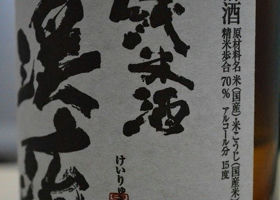 酒
原材料名 米(国産)・米こうじ(国産米)
精米歩合 70% アルコール分 15度
純米酒
けいりゅ
渓流